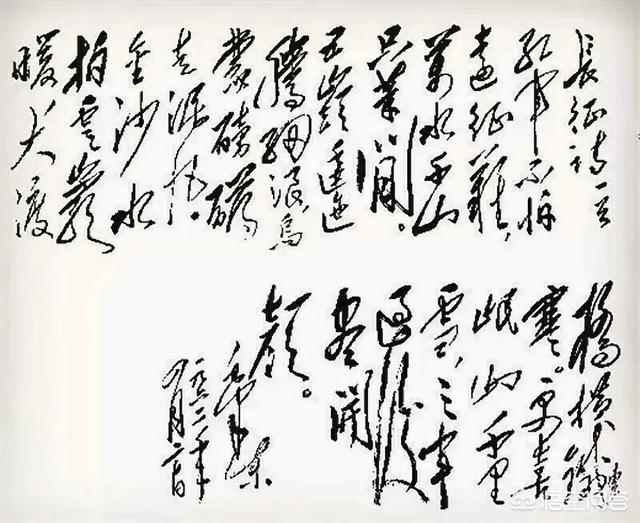 長征詩一首
紅軍不怕
遠征難，
萬水千山
只等閒。
五嶺逶迤
騰細浪烏
蒙磅礴
走泥丸。
金沙水
拍雲崖
暖大渡
橋橫鐵索
寒。更喜
岷山千里
雪，三軍
過後
盡開
顏。
毛澤東
一九六二年
悟空问答